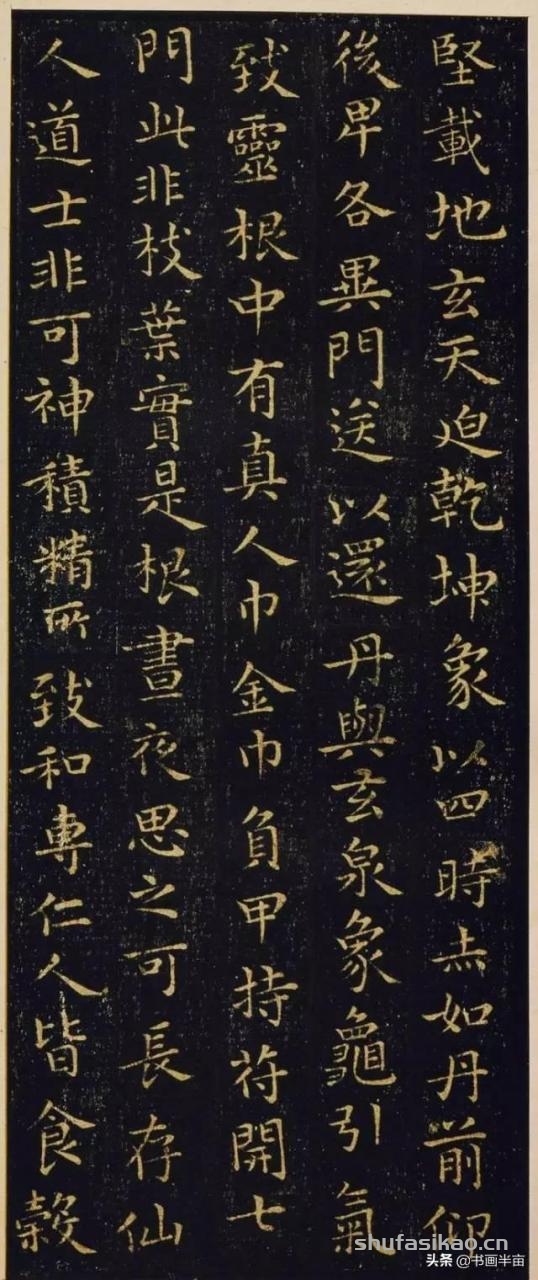 堅載地玄天迫乾坤象以四時赤如丹前仰
後卑各異門送以還丹與玄泉象龜引氣
致靈根中有真人巾金巾負甲持苻開七
門此非枝葉實是根晝夜思之可長存仙
人道士非可神積精所致和專仁人皆食榖
shufasikao.cn
头条 @书画半亩